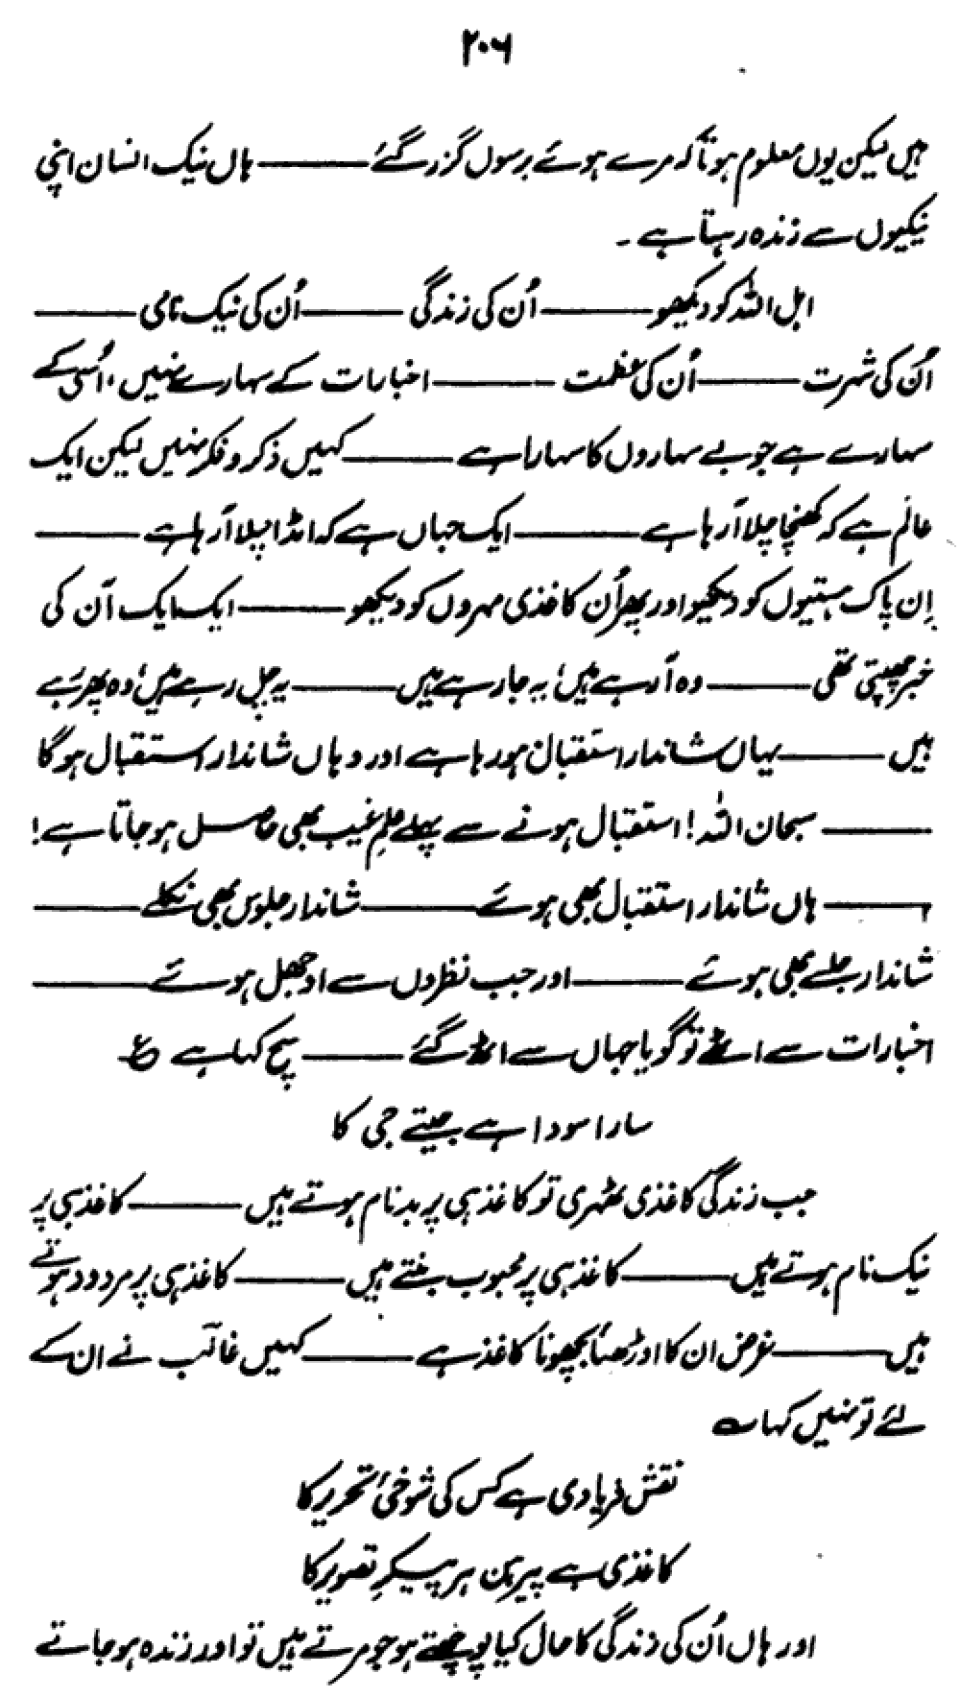 ۲۰۶
ہیں لیکن یوں معلوم ہوتا کہ مرے ہوئے برسوں گزر گئے ——— ہاں نیک انسان اپنی
نیکیوں سے زندہ رہتا ہے۔
اہل اللہ کو دیکھو ——— اُن کی زندگی ——— اُن کی نیک نامی ———
اُن کی شہرت ——— اُن کی عظمت ——— اخبارات کے سہارے نہیں، اُسی کے
سہارے ہے جو بے سہاروں کا سہارا ہے ——— کہیں ذکر و فکر نہیں لیکن ایک
عالم ہے کہ کھنچا چلا آرہا ہے ——— ایک جہاں ہے کہ امڈا چلا آرہا ہے ———
اِن پاک ہستیوں کو دیکھیو اور پھر اُن کاغذی مہروں کو دیکھو ——— ایک ایک آن کی
خبر چھپتی تھی ——— وہ آرہے ہیں، یہ جارہے ہیں ——— یہ چل رہے ہیں، وہ پھر رہے
ہیں ——— یہاں شاندار استقبال ہورہا ہے اور وہاں شاندار استقبال ہوگا
——— سبحان اللہ! استقبال ہونے سے پہلے علمِ غیب بھی حاصل ہوجاتا ہے!
——— ہاں شاندار استقبال بھی ہوئے ——— شاندار جلوس بھی نکلے ———
شاندار جلسے بھی ہوئے ——— اور جب نظروں سے اوجھل ہوئے ———
اخبارات سے اٹھے تو گویا جہاں سے اٹھ گئے ——— سچ کہا ہے ع
سارا سودا ہے جیتے جی کا
جب زندگی کاغذی ٹھہری تو کاغذ ہی پر بدنام ہوتے ہیں ——— کاغذ ہی پر
نیک نام ہوتے ہیں ——— کاغذ ہی پر محبوب بنتے ہیں ——— کاغذ ہی پر مردود ہوتے
ہیں ——— غرض ان کا اوڑھنا بچھونا کاغذ ہے ——— کہیں غالبؔ نے ان کے
لئے تو نہیں کہا ؎
نقش فریادی ہے کس کی شوخیٔ تحریر کا
کاغذی ہے پیرہن ہر پیکرِ تصویر کا
اور ہاں اُن کی زندگی کا حال کیا پوچھتے ہو جو مرتے ہیں تو اور زندہ ہوجاتے